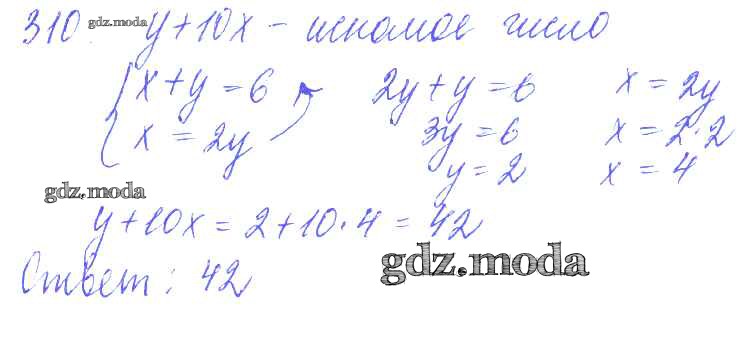 310. gdz.moda y+10x - искомое число
x+y=6 2y+y=6 x=2y
x=2y 3y=6 x=2·2
gdz.moda y=2 x=4
y+10x=2+10·4=42
gdz.moda
Ответ: 42